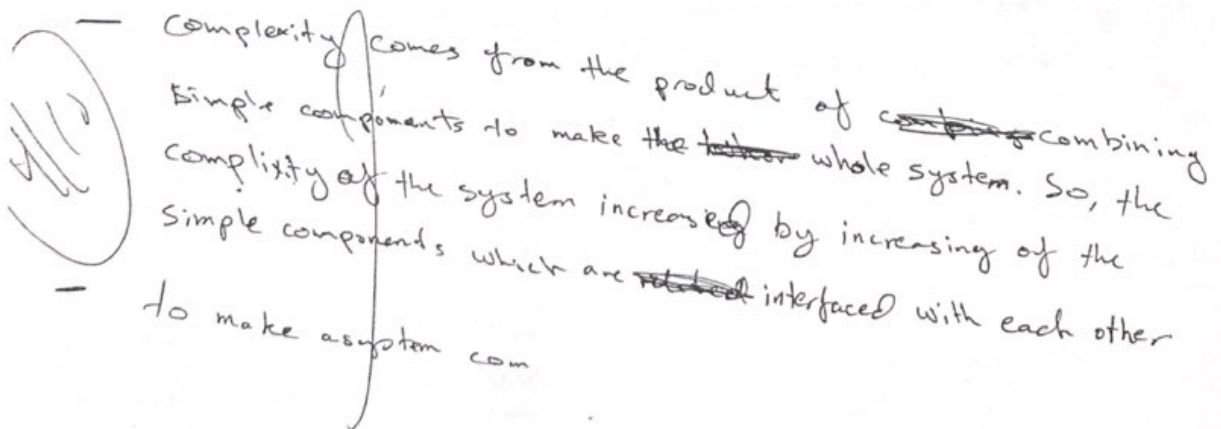 — Complexity comes from the product of combining
Simple components to make the whole system. So, the
Complixity of the system increased by increasing of the
Simple components which are interfaced with each other
— to make a system com